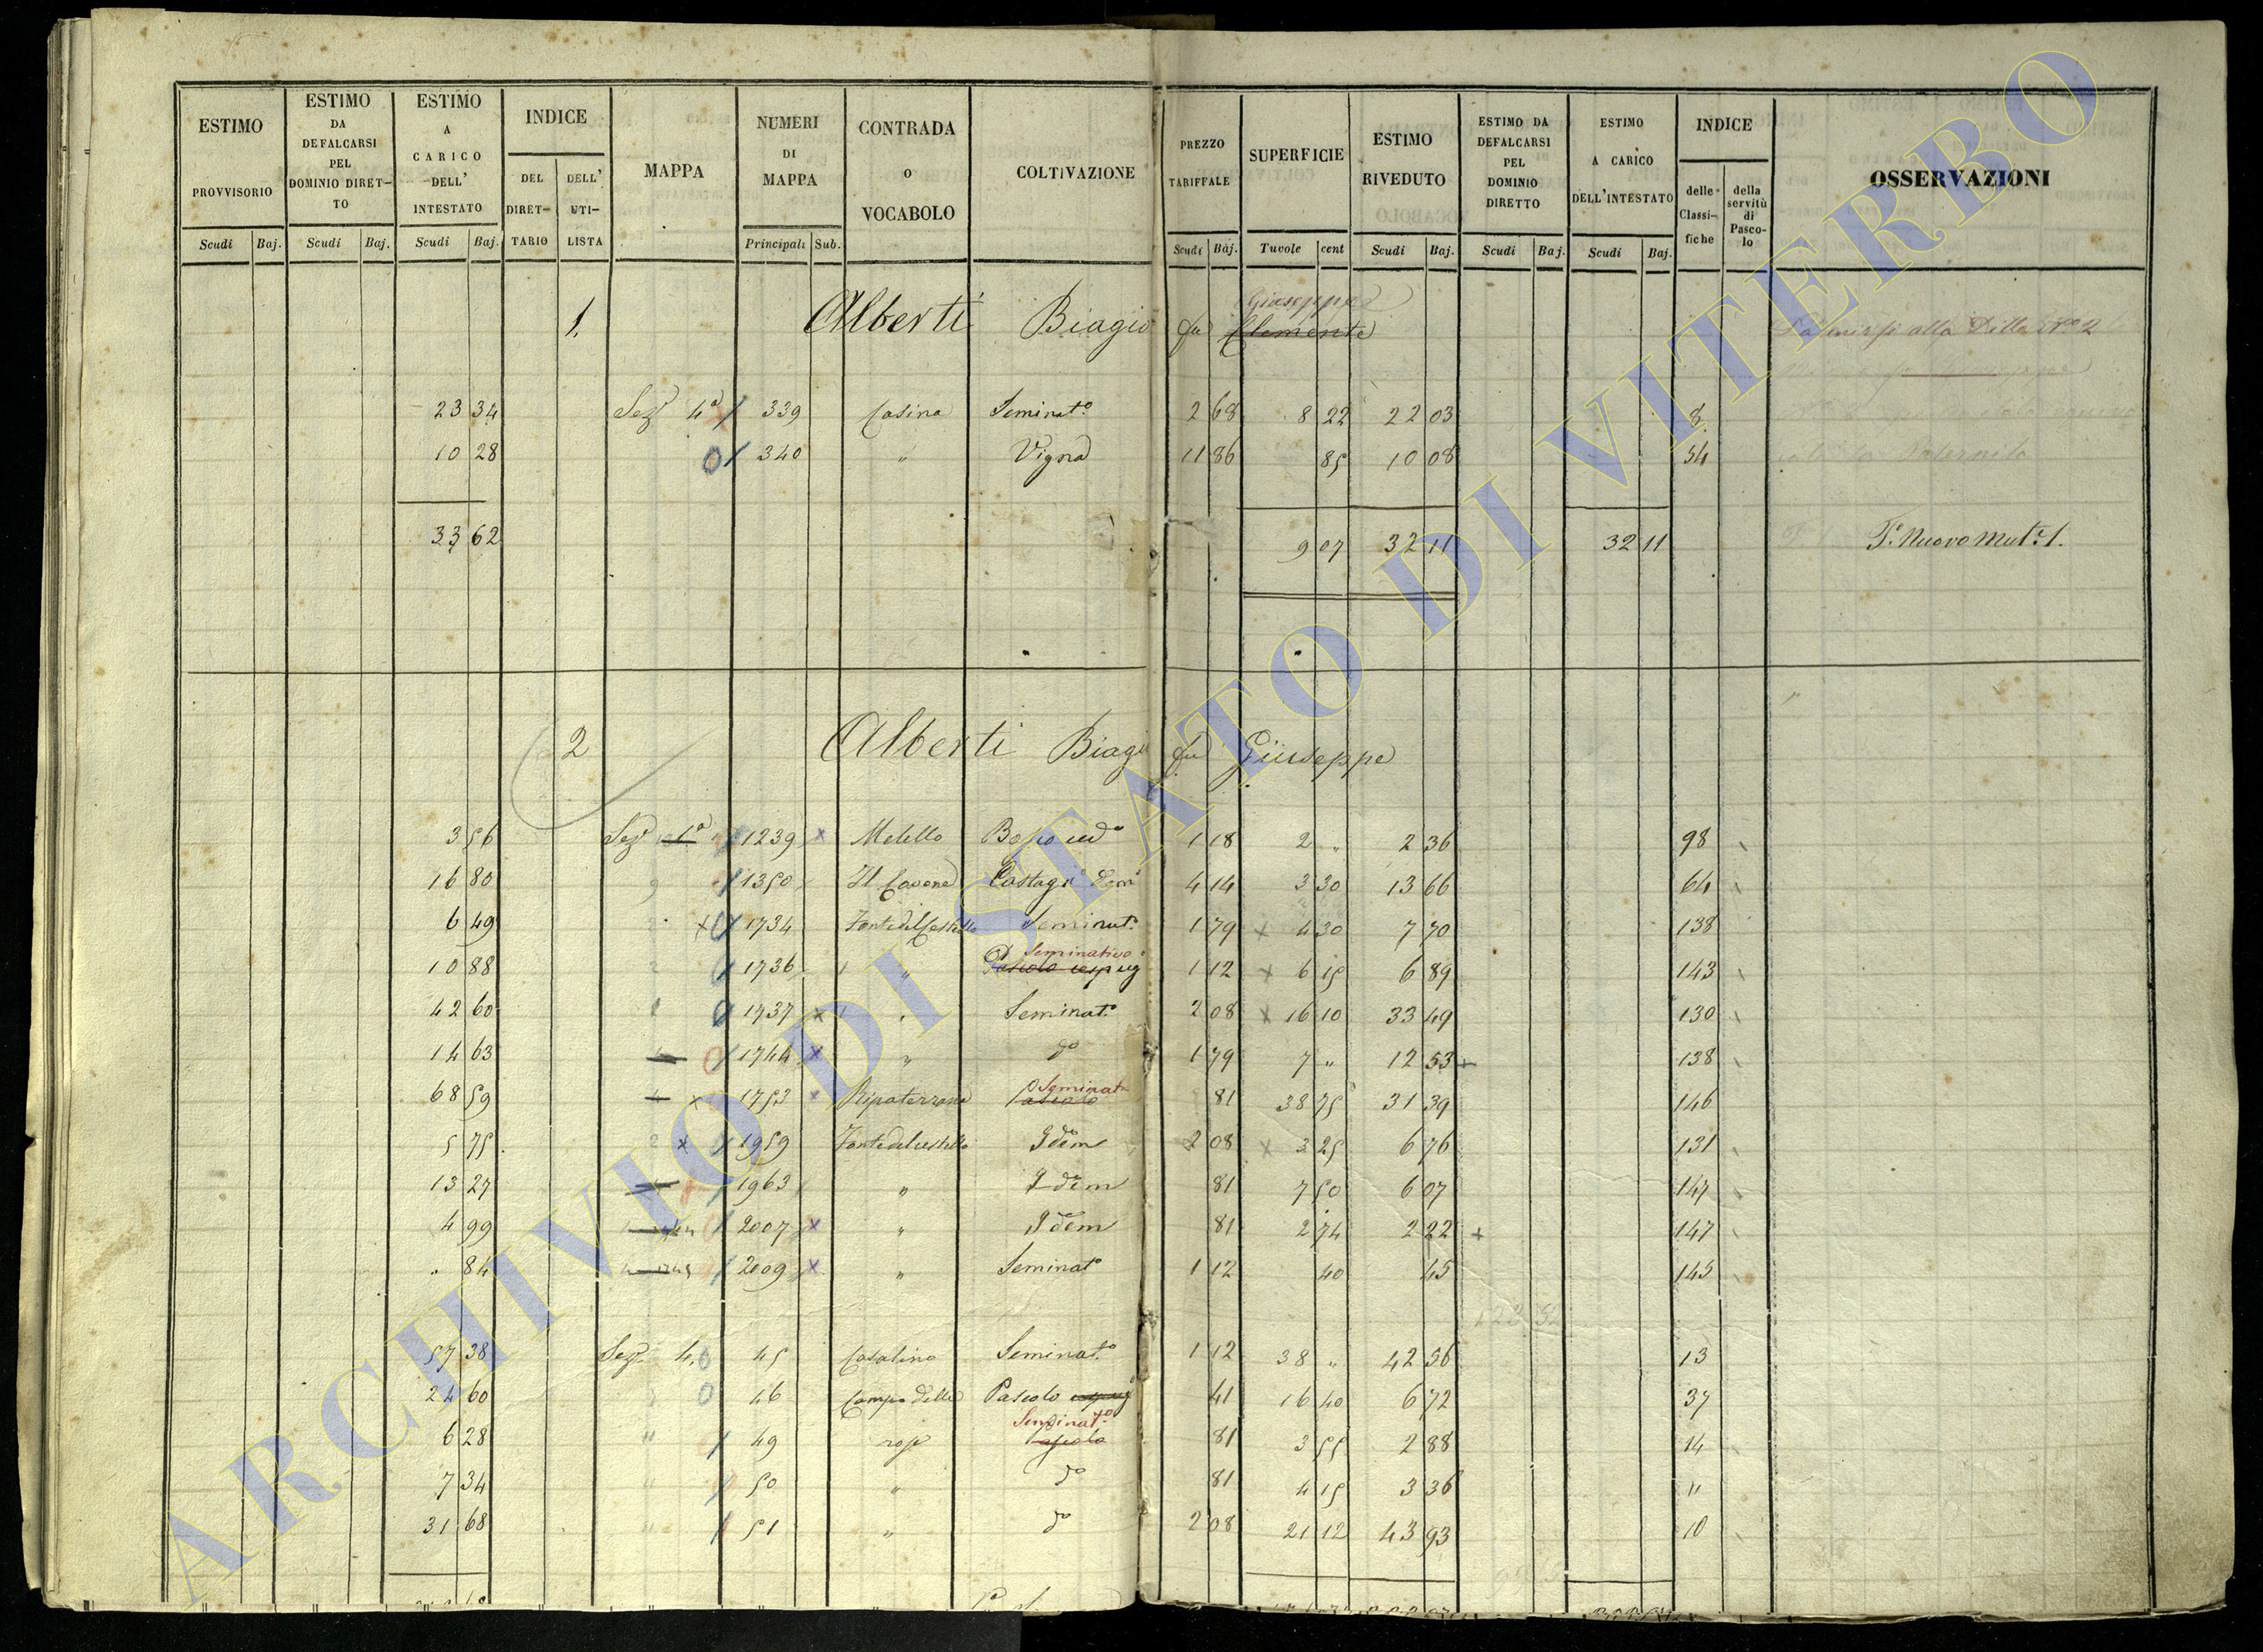 ESTIMO PROVVISORIO Scudi Baj.
ESTIMO DA DEFALCARSI PEL DOMINIO DIRET-TO Scudi Baj.
ESTIMO A CARICO DELL' INTESTATO Scudi Baj.
INDICE DEL DIRET-TARIO DELL' UTI-LISTA
MAPPA
NUMERI DI MAPPA Principali Sub.
CONTRADA O VOCABOLO
COLTIVAZIONE
PREZZO TARIFFALE Scudi Baj.
SUPERFICIE Tavole cent
ESTIMO RIVEDUTO Scudi Baj.
ESTIMO DA DEFALCARSI PEL DOMINIO DIRETTO Scudi Baj.
ESTIMO A CARICO DELL'INTESTATO Scudi Baj.
INDICE delle Classi-fiche della servitù di Pasco-lo
OSSERVAZIONI
Giuseppe
1. Alberti Biagio fu Clemente alla Ditta N° 2
23 34 Sezᵉ 4ª 339 Casina Seminatº 2 68 8 22 22 03 8
10 28 0 340 " Vigna 11 86 85 10 08 54
33 62 9 07 32 11 32 11 Pº Nuovo Mutº 1.
2 Alberti Biagio fu Giuseppe
3 56 Sezᵉ 1ª 1239 x Melello Bosco cedº 1 18 2 " 2 36 98
16 80 1350 Il Cavone Castagnº 4 14 3 30 13 66 64
6 49 x 1734 Fonte del Castello Seminatº 1 79 x 4 30 7 70 138
Seminativo
10 88 1736 " Pascolo cespug 1 12 x 6 15 6 89 143
42 60 1737 x " Seminatº 2 08 x 16 10 33 49 130
14 63 1744 x " dº 1 79 7 " 12 53 138
Seminatº
68 59 x 1753 x Ripaterrone Pascolo 81 38 75 31 39 146
5 75 x 1959 Fonte del Castello Idem 2 08 x 3 25 6 76 131
13 27 1963 " Idem 81 7 50 6 07 147
4 99 2007 x " Idem 81 2 74 2 22 147
" 84 2009 x " Seminatº 1 12 40 45 145
57 38 Sezᵉ 4. 0 45 Casalino Seminatº 1 12 38 " 42 56 13
24 60 0 46 Campo delle Pascolo cespug 41 16 40 6 72 37
Seminatº
6 28 " 49 rose Pascolo 81 3 55 2 88 14
7 34 " 50 " dº 81 4 15 3 36 "
31 68 " 51 " dº 2 08 21 12 43 93 10
ARCHIVIO DI STATO DI VITERBO